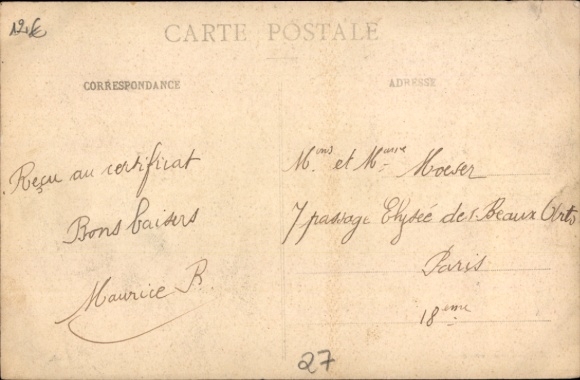 12€
CARTE POSTALE
CORRESPONDANCE
ADRESSE
Reçu au certificat
Bons baisers
Maurice P.
M.ons et M.me Moeser
7 passage Elysée des Beaux Arts
Paris
18 eme
27